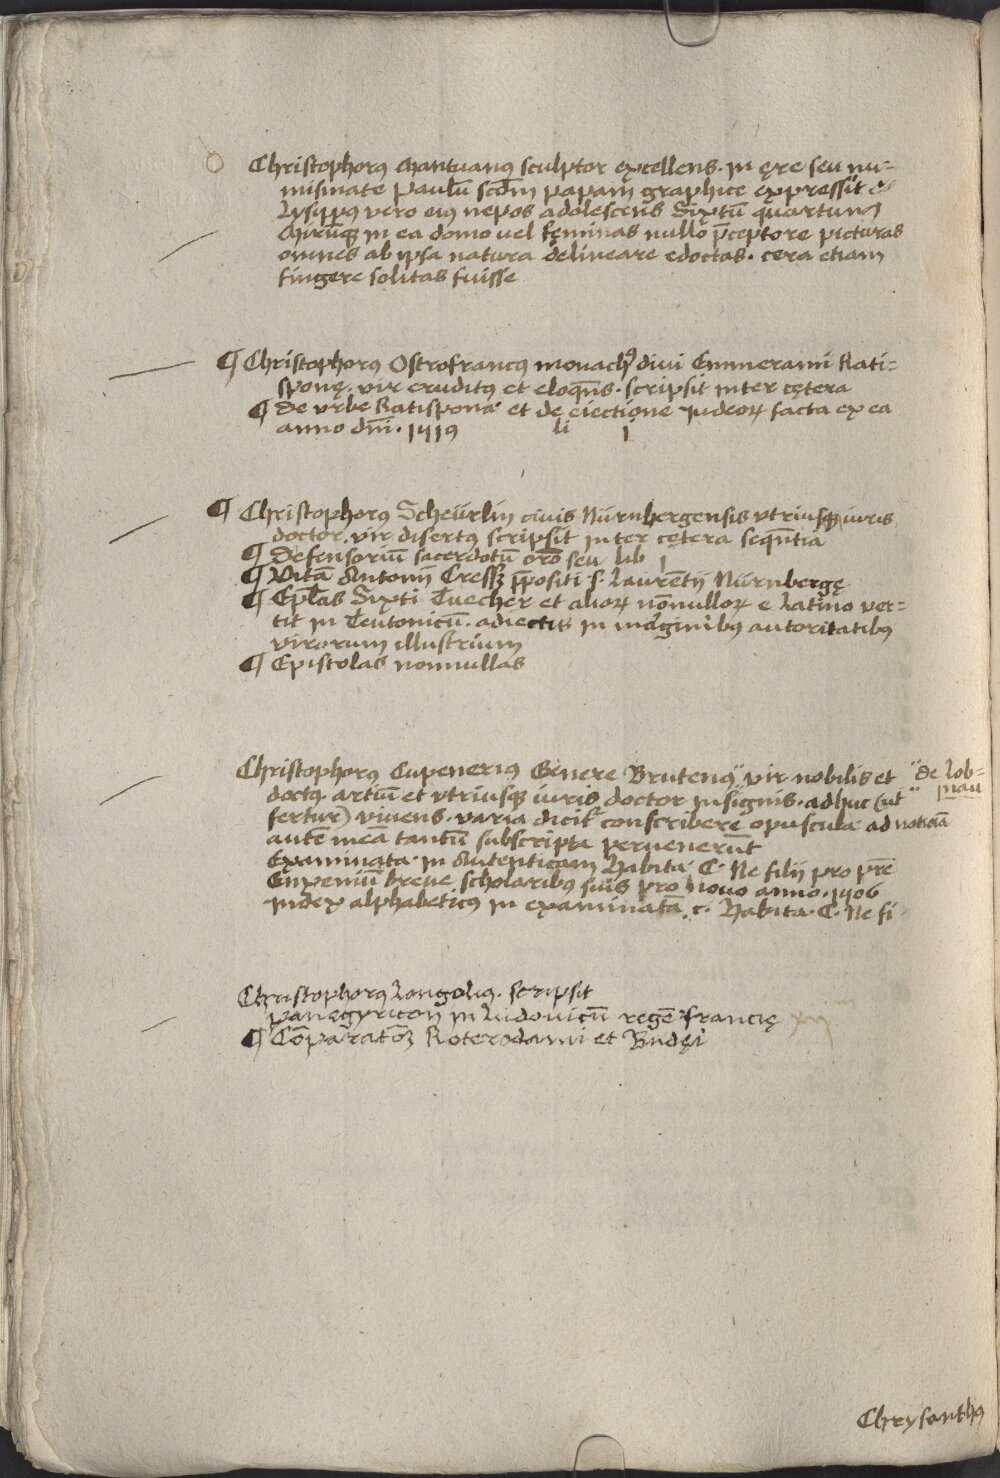 Christophorꝰ Mantuanꝰ sculptor excellens. in ęre seu nu=
mismate Paulū scd̄m papam graphice expressit &
Lysippꝰ vero eiꝰ nepos adolescens Sixtū quartum
Mirūqꝫ in ea domo uel fęminas nullo p̄ceptore picturas
omnes ab ipsa natura delineare edoctas. cera etiam
fingere solitas fuisse
¶ Christophorꝰ Ostrofrancꝰ monachꝰ divi Emmerami Rati=
sponę. vir eruditꝰ et eloqn̄s. scripsit inter cętera
¶ De vrbe Ratispona et de eiectione Iudeoꝝ facta ex ea
anno dn̄i. 1519 li 1
¶ Christophorꝰ Scheürlin civis Nürnbergensis vtriusqꝫ iuris
doctor. vir disertꝰ scripsit inter cętera seqn̄tia
¶ Defensoriū sacerdotū oro seu lib 1
¶ Vitā Antonij Cressꝫ p̄positi s. Laurētij Nürnbergę
¶ Epl̄as Sixti Tuecher et alioꝝ nōnulloꝝ e latino ver=
tit in Teutonicū. adiectis in marginibꝰ autoritatibꝰ
virorum illustrium
¶ Epistolas nonnullas
Christophorꝰ Cupenerꝰ Genere Brutenꝰ" vir nobilis et "de Lob=
doctꝰ. artiū et vtriusqꝫ iuris doctor insignis. adhuc (ut " nau
fertur) vivens. varia dicit᷑ conscribere opuscula ad noticiā
autē meā tantū subscripta pervenerūt
Examinata. in Autenticam Habita C. Ne filij pro pr̄e
Eupeniū breue scholaribꝰ suis pro novo anno. 1506
Index alphabeticꝰ in examinatā c. Habita. C. Ne fi
Christophorꝰ Longoliꝰ. scripsit
panegyricon in Ludovicū regē francię xij
¶ Cōparatōꝫ Roterodami et Budęi
Chrysanthꝰ